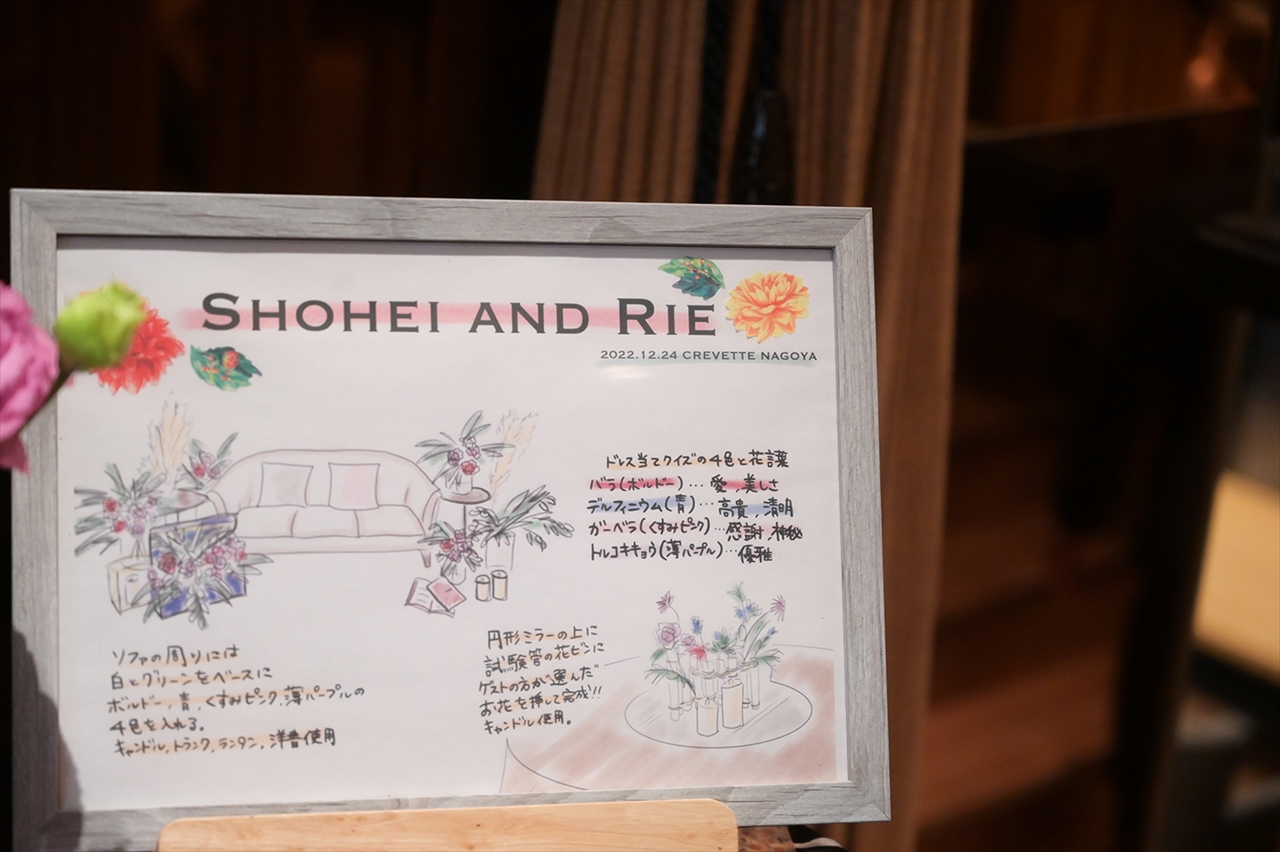 SHOHEI AND RIE
2022.12.24 CREVETTE NAGOYA
ドレス当てクイズの4色と花言葉
バラ(ボルドー)…愛,美しさ
デルフィニウム(青)…高貴,清明
ガーベラ(くすみピンク)…感謝,神秘
トルコキキョウ(薄パープル)…優雅
ソファの周りには
白とグリーンをベースに
ボルドー,青,くすみピンク,薄パープルの
4色を入れる。
キャンドル,トランク,ランタン,洋書使用
円形ミラーの上に
試験管の花ビンに
ゲストの方が選んだ
お花を挿して完成!!
キャンドル使用。